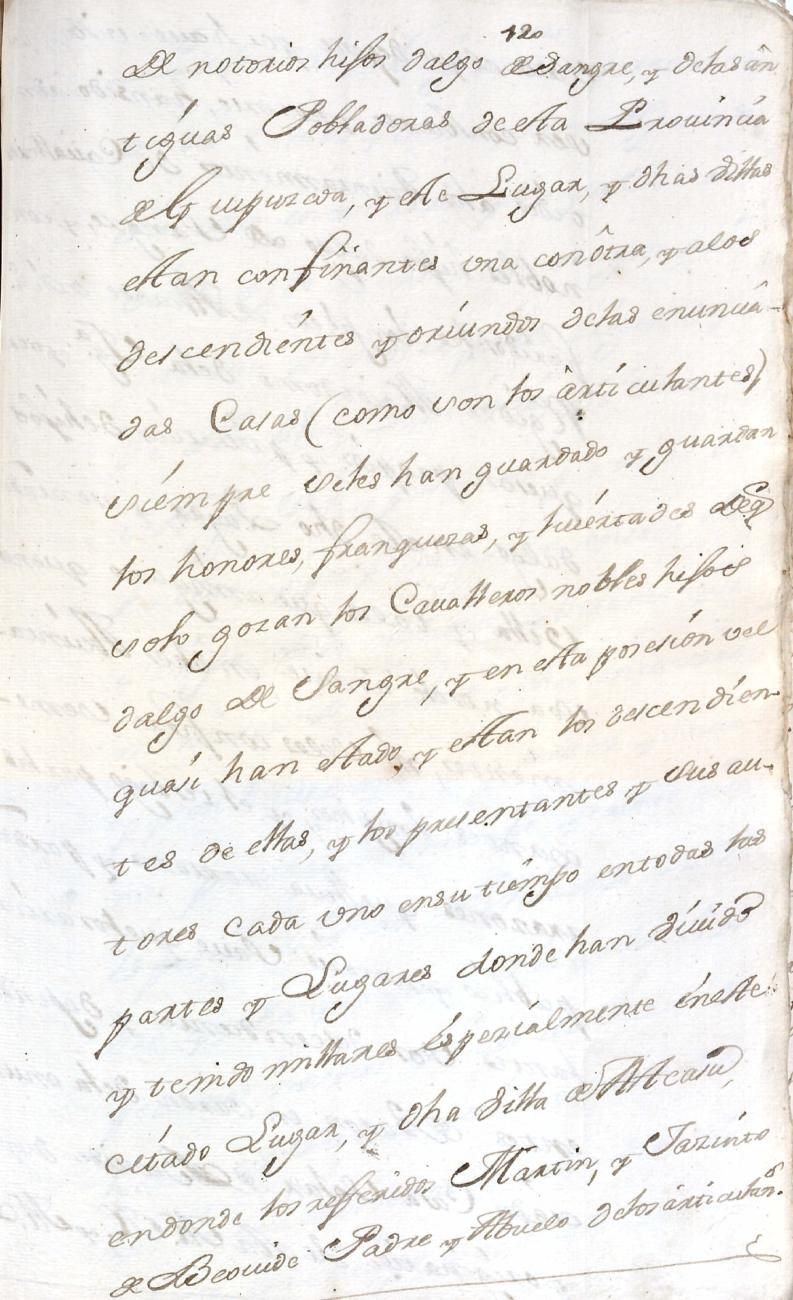 120
De notorios hijos dalgo de Sangre, y delas an
tiguas Pobladoras de esta Provincia
de Guipuzcoa, y este Lugar, y dhas Villas
estan confinantes una con ôtra, y alos
descendientes y oriundos delas enuncia-
das Casas (como son los ârticulantes)
siempre seles han guardado y guardan
los honores, franquezas, y livertades de q̃
solo gozan los Cavalleros nobles hijos
dalgo de Sangre, y en esta posesion vel
quasi han estado, y estan los descendien-
tes de ellas, y los presentantes y sus au-
tores cada uno ensu tiempo entodas las
partes y Lugares donde han vivido
y tenido millares Especialmente en este
citado Lugar, y dha Villa de
endonde los referidos Martin, y Jazinto
de Beovide Padre y Abuelo delos articulan.s